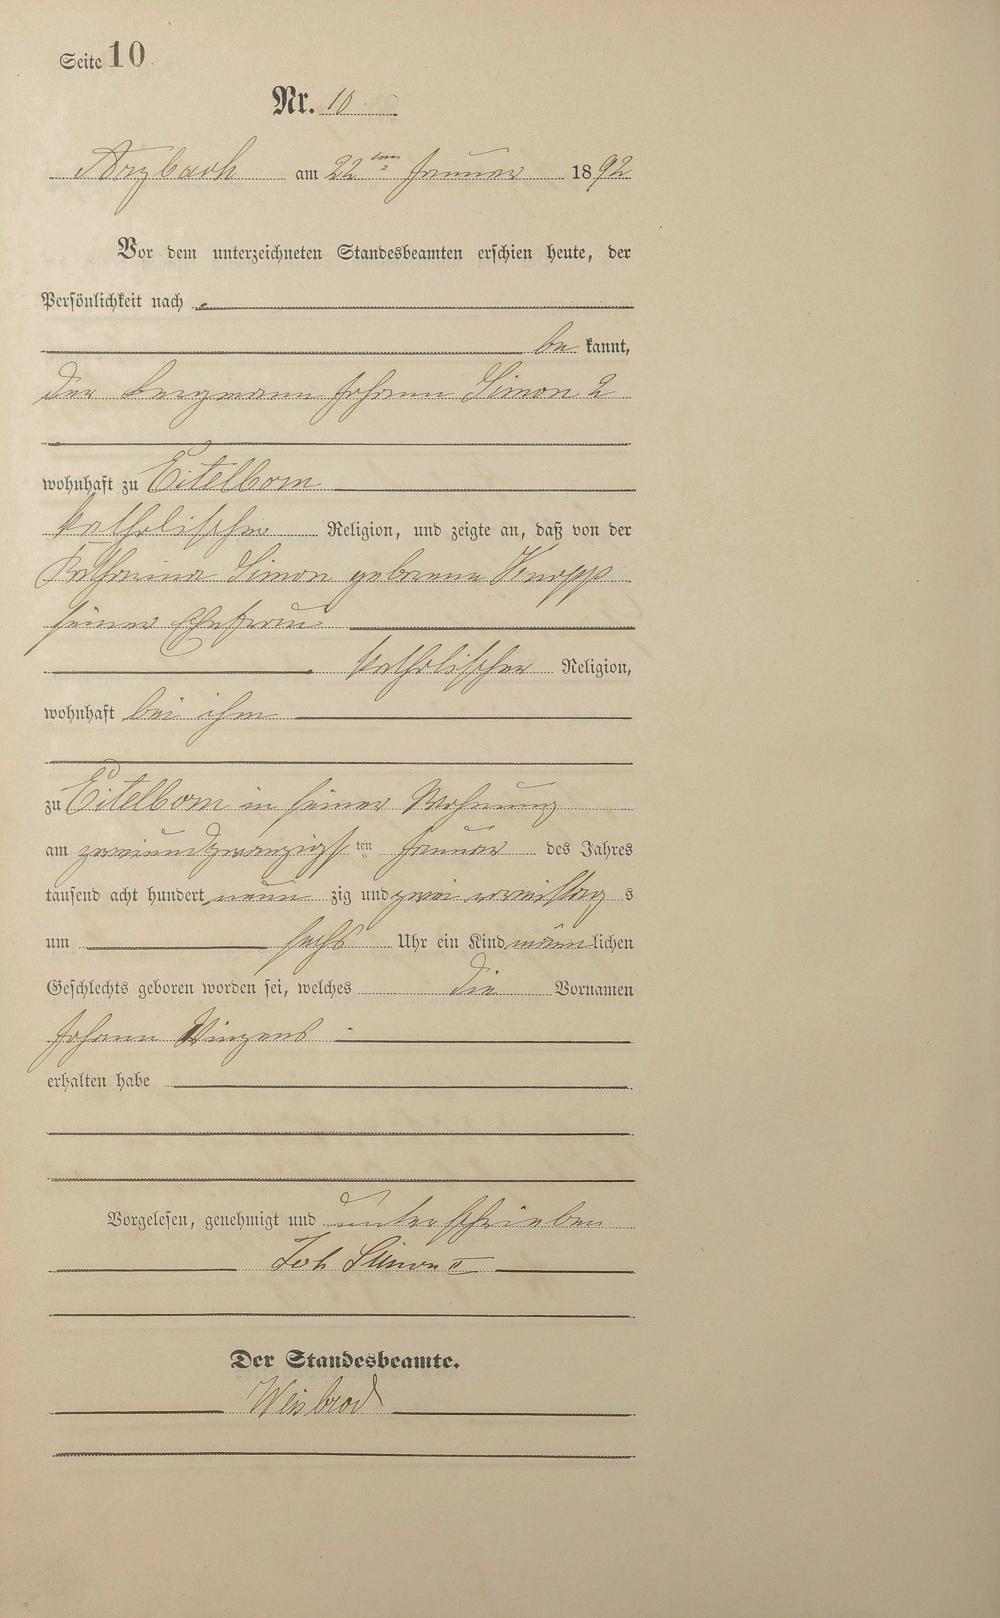 Seite 10
Nr. 10
Arzbach am 22ten Januar 1892
Vor dem unterzeichneten Standesbeamten erschien heute, der
Persönlichkeit nach
be kannt,
der Bergmann Johann Simon 2
wohnhaft zu Eitelborn
katholischer Religion, und zeigte an, daß von der
Katharina Simon geborene Knopp
seiner Ehefrau
katholischer Religion,
wohnhaft bei ihm
zu Eitelborn in seiner Wohnung
am zweiundzwanzigsten Januar des Jahres
tausend acht hundert neun zig und zwei vormittag s
um sechs Uhr ein Kind männlichen
Geschlechts geboren worden sei, welches die Vornamen
Johann Vinzens
erhalten habe
Vorgelesen, genehmigt und unterschrieben
Joh Simon II
Der Standesbeamte.
Weisbrod